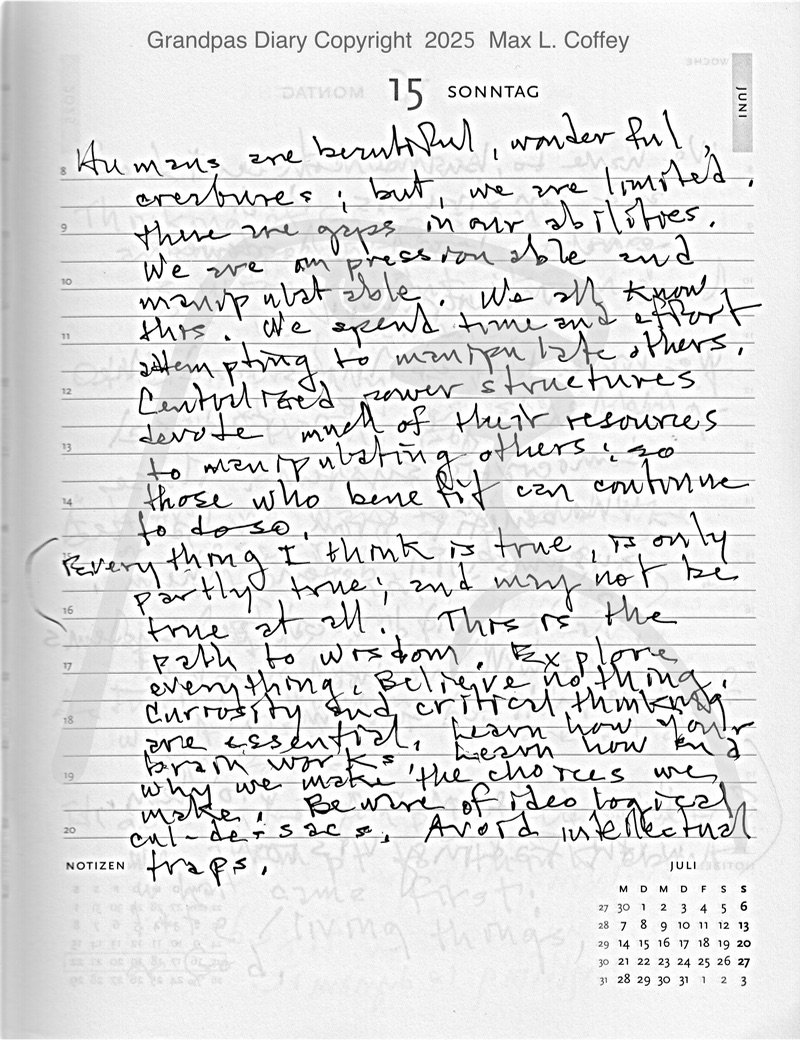 Grandpas Diary Copyright 2025 Max L. Coffey
15 SONNTAG
JUNI
8
9
10
11
12
13
14
15
16
17
18
19
20
Humans are beautiful, wonderful,
creatures; but, we are limited.
there are gaps in our abilities.
We are impressionable and
manipulatable. We all know
this. We spend time and effort
attempting to manipulate others.
Centralized power structures
devote much of their resources
to manipulating others; so
those who benefit can continue
to do so.
Everything I think is true, is only
partly true; and may not be
true at all. This is the
path to wisdom. Explore
everything. Believe nothing.
Curiosity and critical thinking
are essential. Learn how your
brain works. Learn how and
why we make the choices we
make. Beware of ideological
cul-de-sacs. Avoid intellectual
traps.
NOTIZEN
JULI
M D M D F S S
27 30 1 2 3 4 5 6
28 7 8 9 10 11 12 13
29 14 15 16 17 18 19 20
30 21 22 23 24 25 26 27
31 28 29 30 31 1 2 3